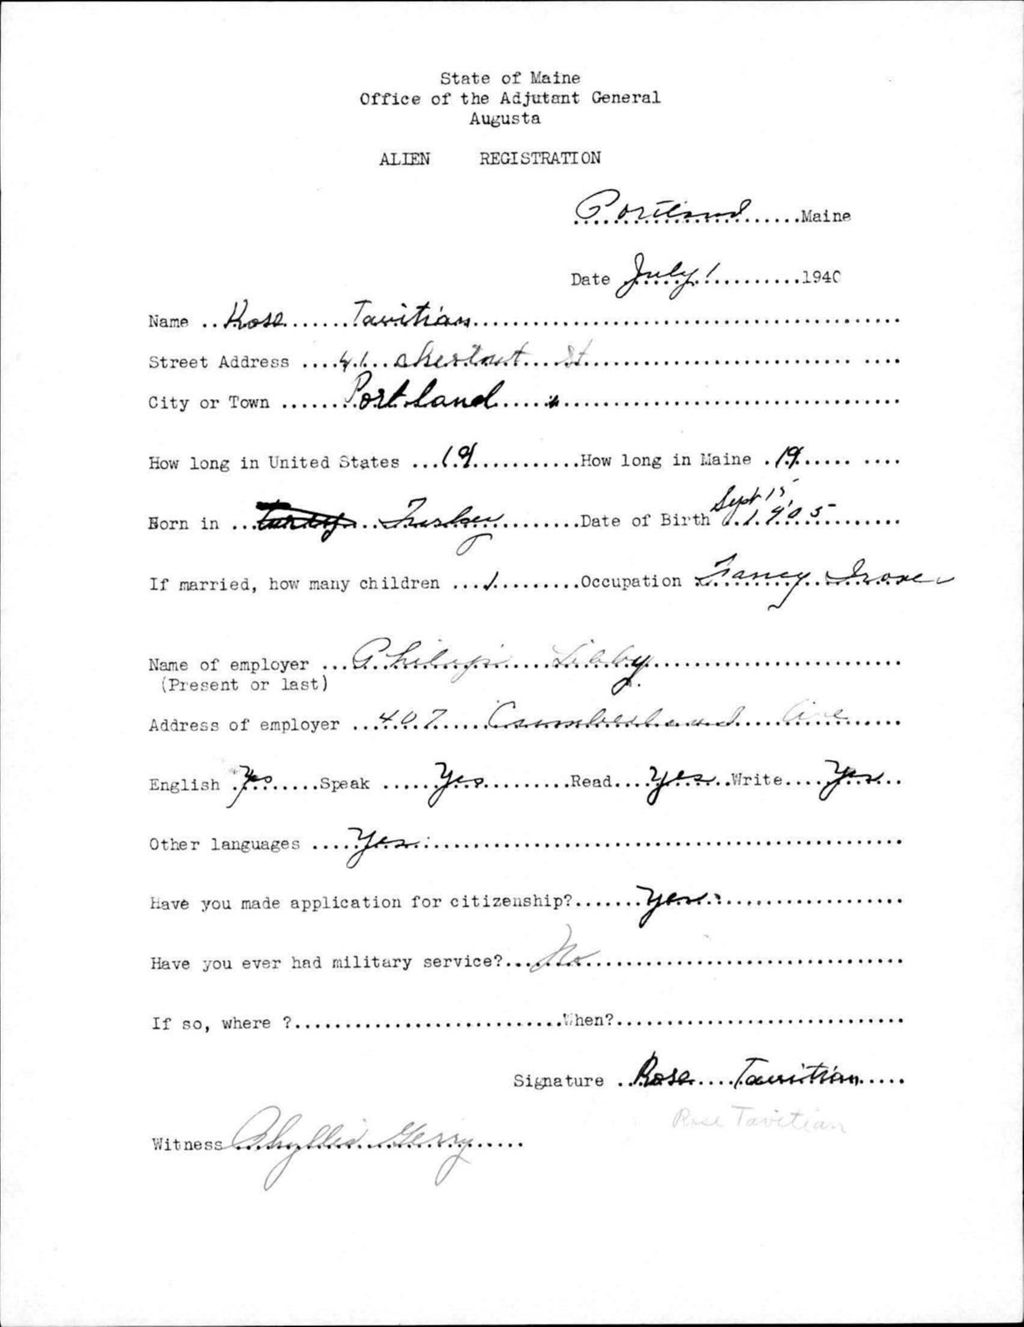 State of Maine
Office of the Adjutant General
Augusta
ALIEN REGISTRATION
Portland Maine
Date July 1 1940
Name Rose Tavitian
Street Address 41 chestnut St
City or Town Portland
How long in United States 19 How long in Maine 19
Born in Turkey Date of Birth Sept 15, 1905
If married, how many children 1 Occupation Fancy Irone
Name of employer Philip Libby
(Present or last)
Address of employer 407 Cumberland Ave
English Yes Speak Yes Read Yes Write Yes
Other languages Yes
Have you made application for citizenship? Yes
Have you ever had military service? No
If so, where ? When?
Signature Rose Tavitian
Rose Tavitian
Witness Phyllis Gerry